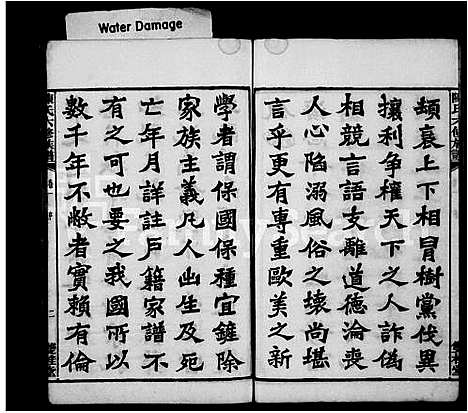 Water Damage
頹衰上下相冒樹黨伐異
攘利爭權天下之人詐偽
相競言語支離道德淪喪
人心陷溺風俗之壞尚堪
言乎更有專重歐美之新
學者謂保國保種宜鏟除
家族主義凡人出生及死
亡年月詳註戶籍家譜不
有之可也要之我國所以
數千年不敝者實賴有倫